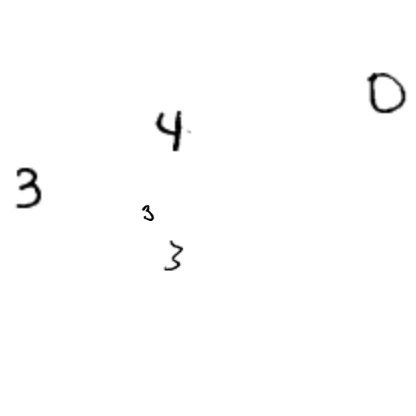 0
4
3
3
3